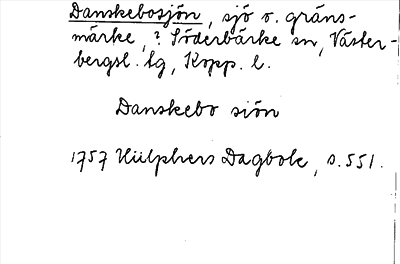 Danskebosjön, sjö o. gräns-
märke, ? Söderbärke sn, Väster-
bergsl. tg, Kopp. l.
Danskebo siön
1757 Hülphers Dagbok, s. 551.